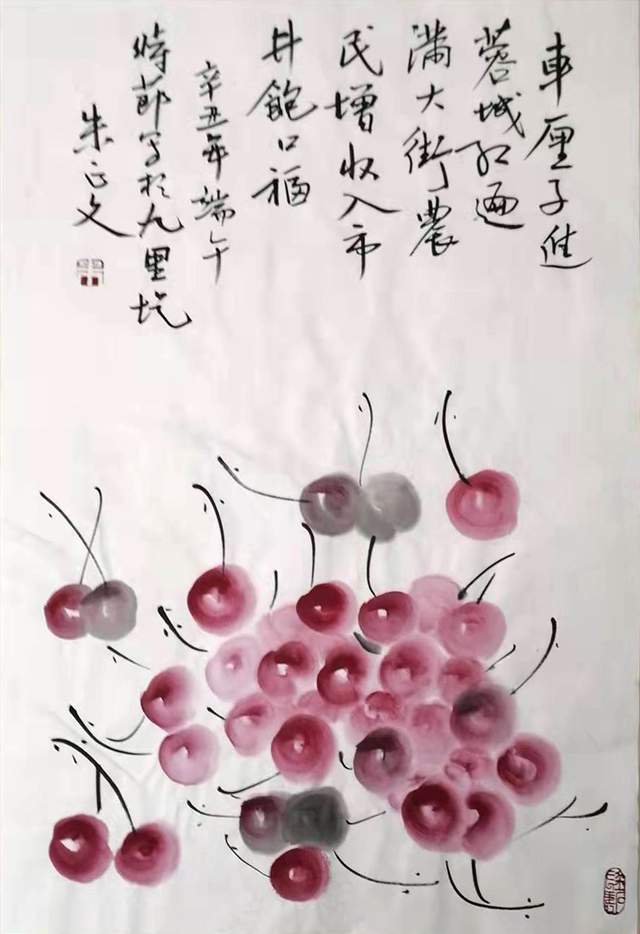 車厘子進
蓉城红遍
满大街農
民增收入市
井飽口福
辛丑年端午
時節写於九里堤
朱正文